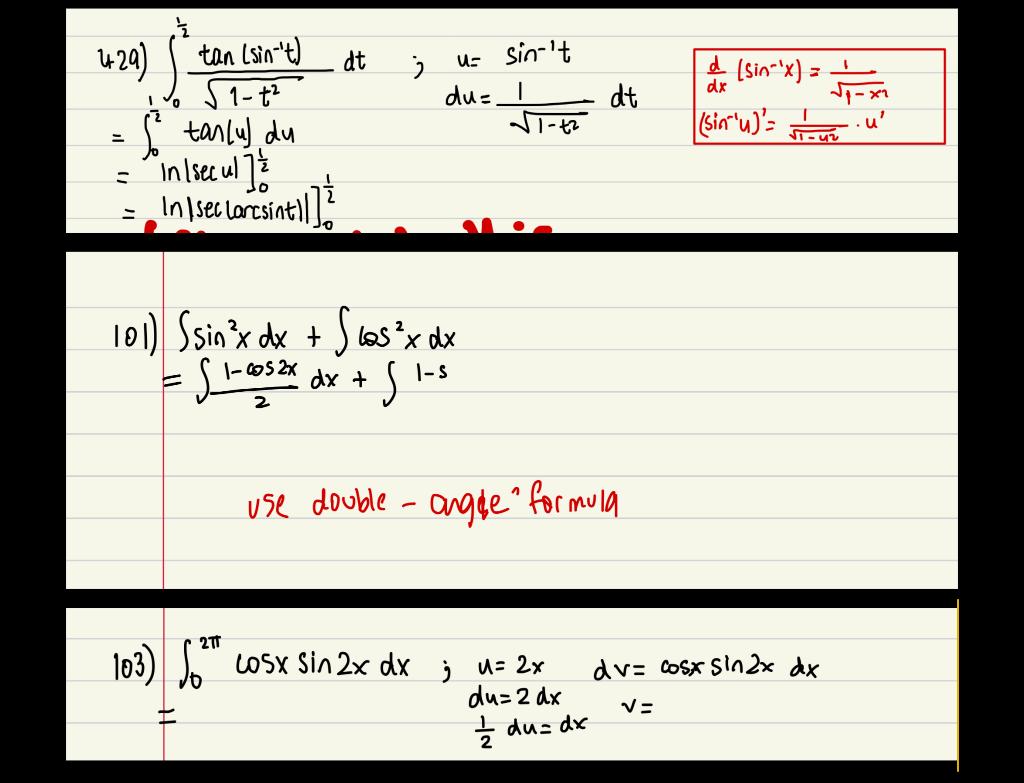 429) ∫₀^½ tan(sin⁻¹t) / √(1-t²) dt ; u= sin⁻¹t
du = 1/√(1-t²) dt
d/dx (sin⁻¹x) = 1/√(1-x²)
(sin⁻¹u)' = 1/√(1-u²) · u'
= ∫₀^½ tan(u) du
= ln|sec u| ]₀^½
= ln|sec(arcsint)| ]₀^½
101) ∫sin²x dx + ∫cos²x dx
= ∫ (1-cos2x)/2 dx + ∫ 1-s
use double - angle formula
103) ∫₀^2π cosx sin2x dx ; u= 2x dv= cosx sin2x dx
= du=2 dx v=
1/2 du= dx